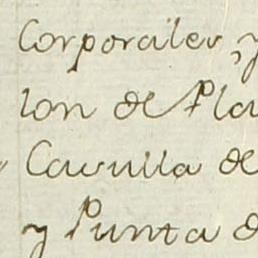 Corporales, y
lon de Pla
Cavulla de
y Punta d